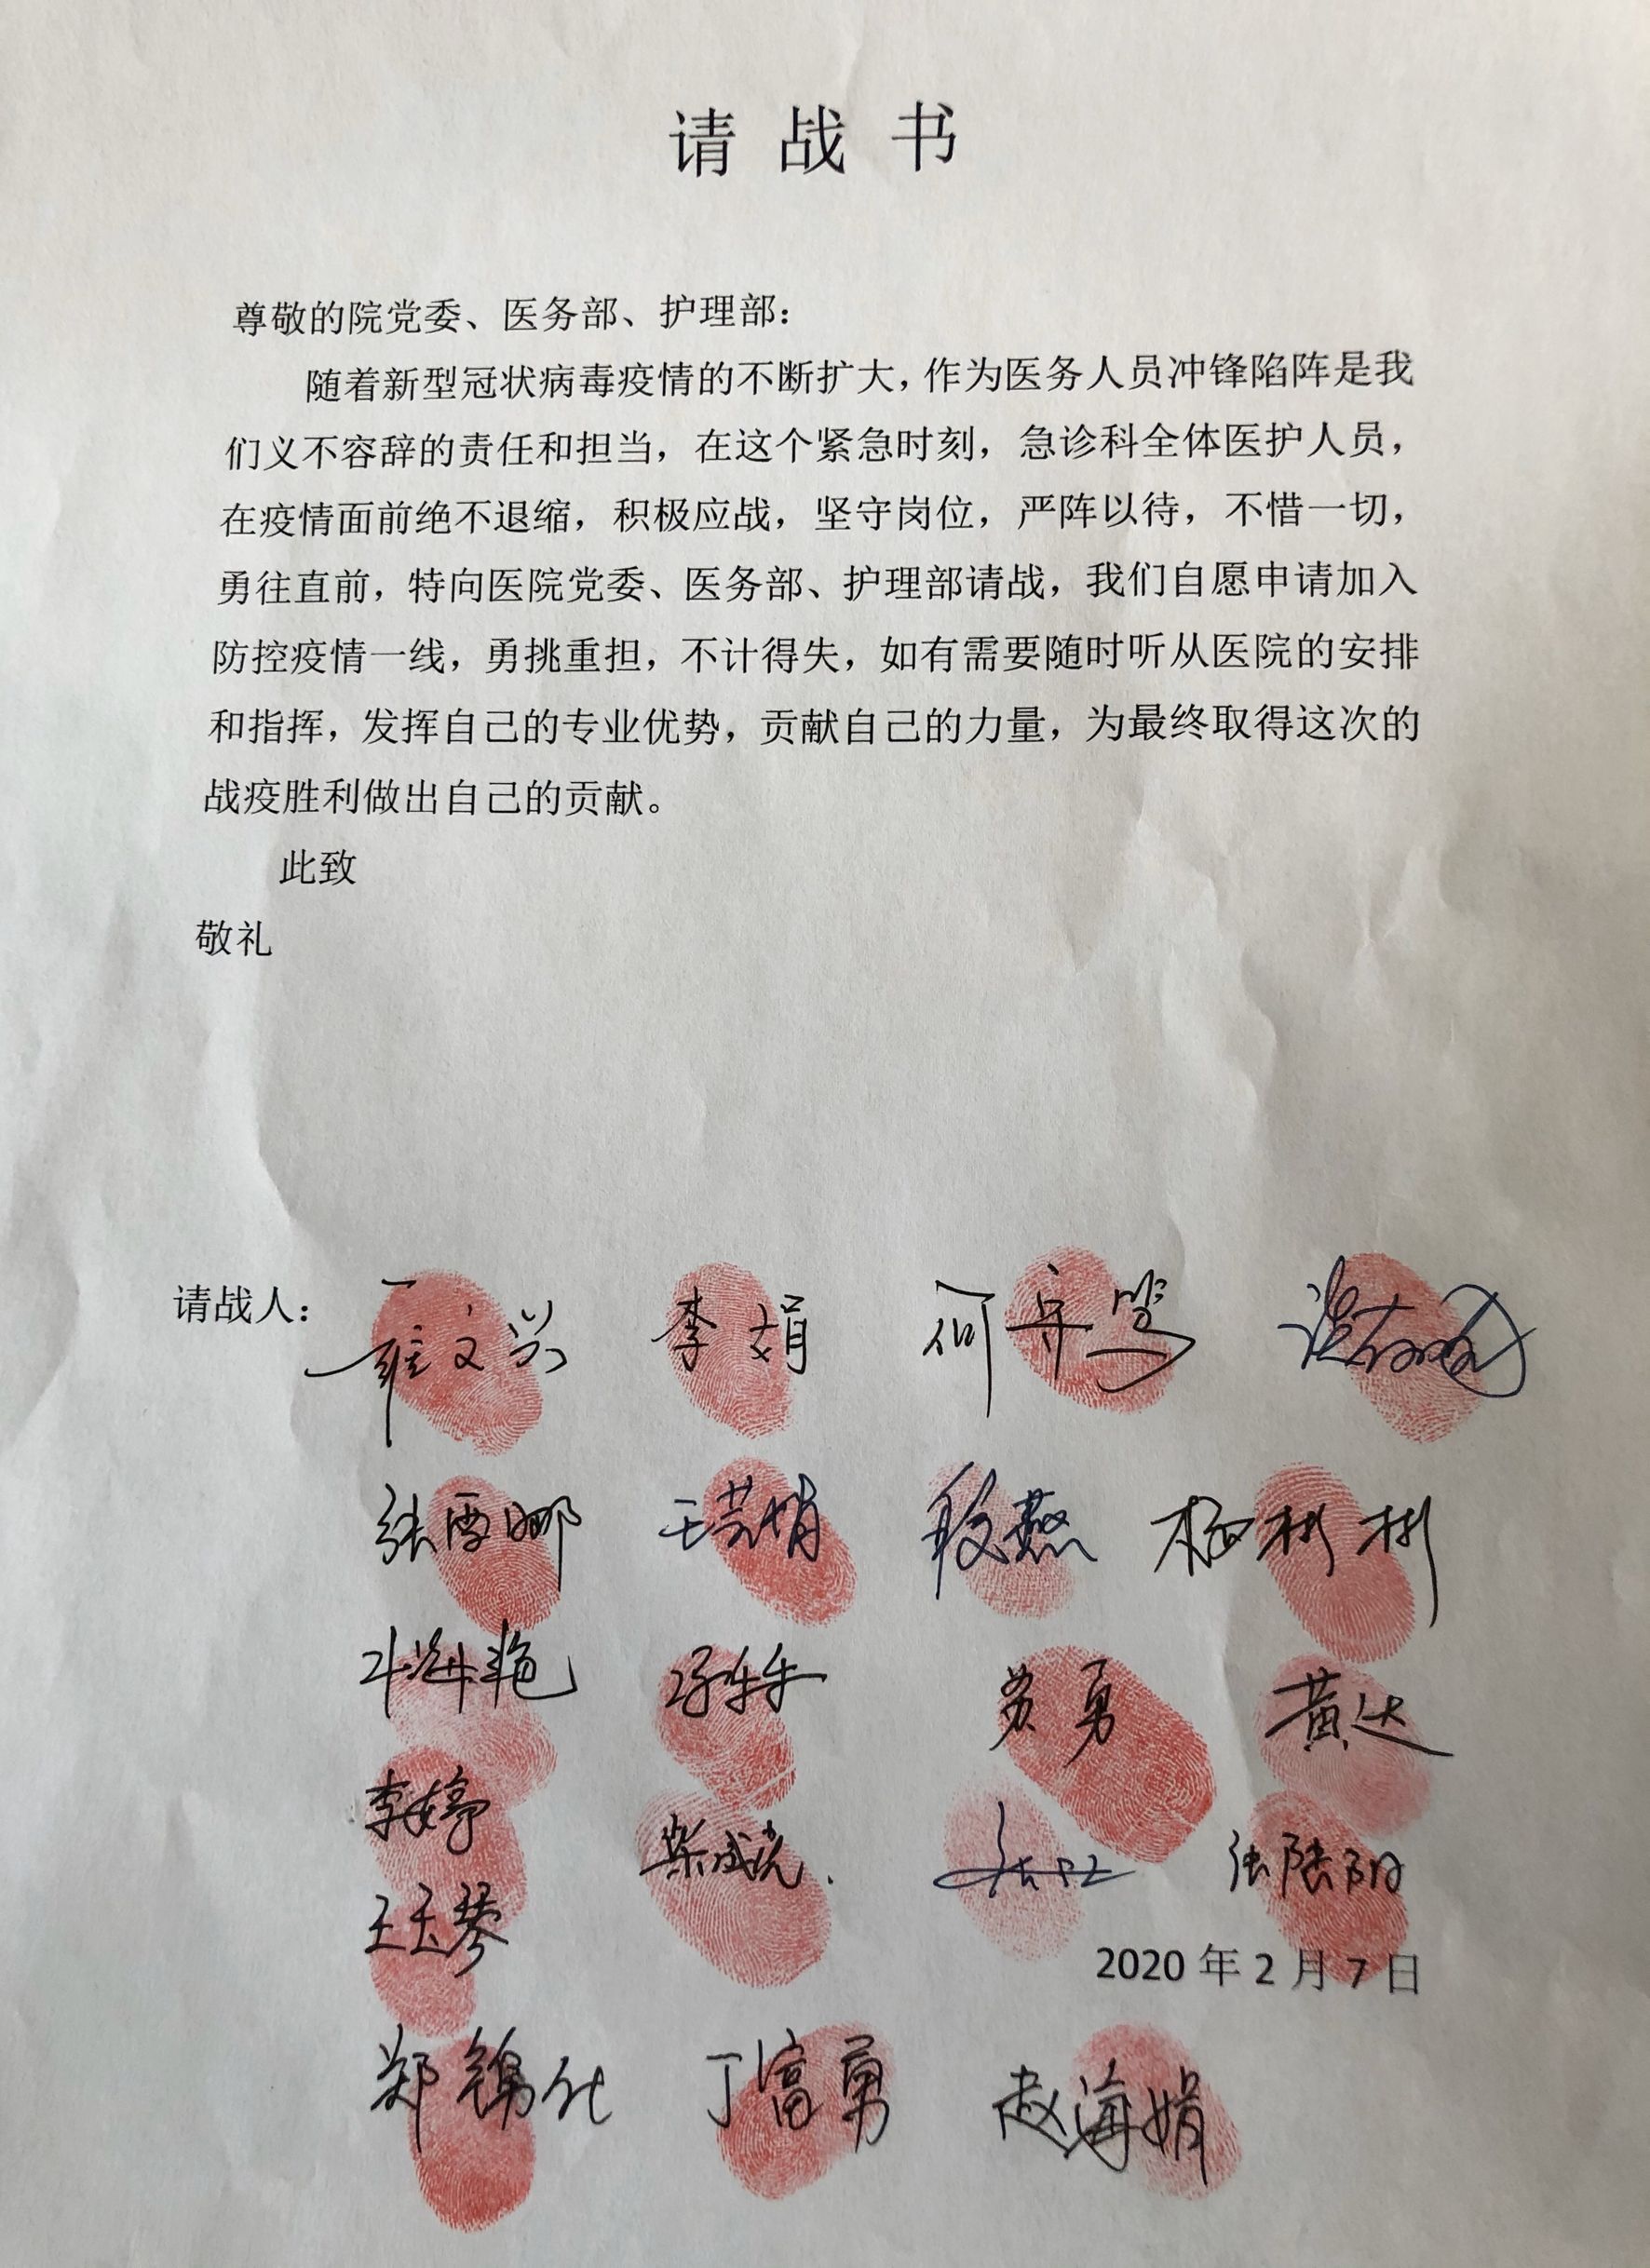 请战书
尊敬的院党委、医务部、护理部：
随着新型冠状病毒疫情的不断扩大，作为医务人员冲锋陷阵是我
们义不容辞的责任和担当，在这个紧急时刻，急诊科全体医护人员，
在疫情面前绝不退缩，积极应战，坚守岗位，严阵以待，不惜一切，
勇往直前，特向医院党委、医务部、护理部请战，我们自愿申请加入
防控疫情一线，勇挑重担，不计得失，如有需要随时听从医院的安排
和指挥，发挥自己的专业优势，贡献自己的力量，为最终取得这次的
战疫胜利做出自己的贡献。
此致
敬礼
请战人： 李娟
张雪娜 段燕 杨彬彬
苏勇 黄达
李婷 张陆阳
王玉琴
2020年2月7日
丁富勇 赵海娟